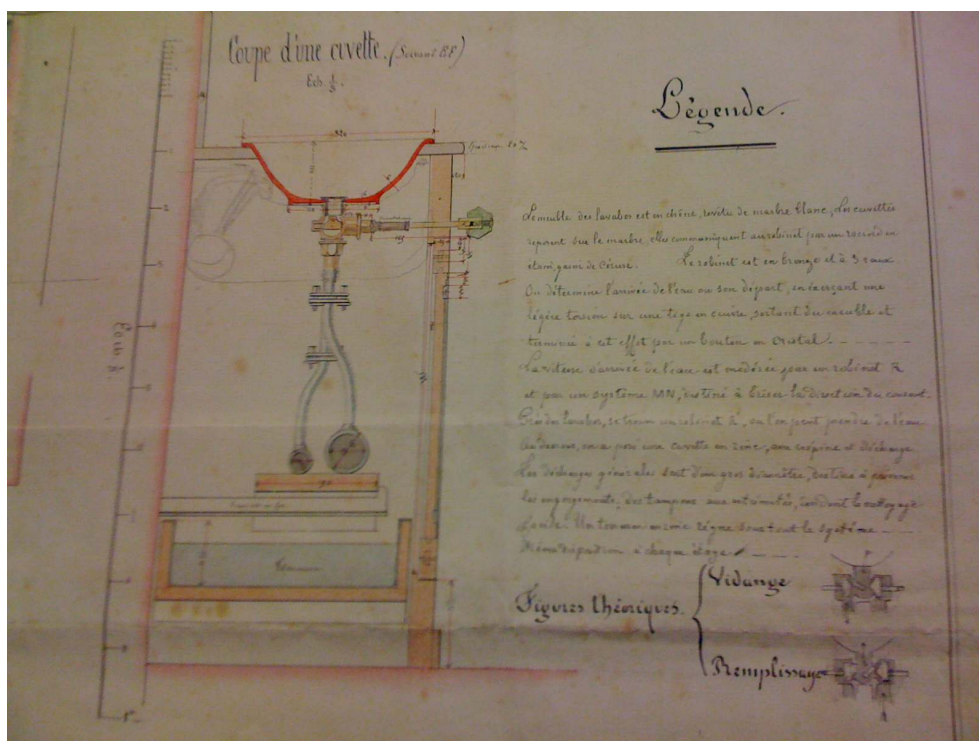 Coupe d'une cuvette. (Suivant E.F.)
Ech. 1/5.
Légende.
320
Le meuble des lavabos est en chêne, revêtu de marbre blanc, les cuvettes
reposent sur le marbre, elles communiquent au robinet par un raccord en
étain, garni de Céruse. Le robinet est en bronze et à 3 eaux
On détermine l'arrivée de l'eau ou son départ, en exerçant une
légère torsion sur une tige en cuivre, sortant du meuble et
terminée à cet effet par un bouton en cristal.
La vitesse d'arrivée de l'eau est modérée par un robinet R
et par un système MN, destiné à briser la direction du courant.
Près des lavabos, se trouve un robinet R', où l'on peut prendre de l'eau
au dessous, on a posé une cuvette en zinc, avec crépine et décharge
Les décharges générales sont d'un gros diamètre, destiné à prévenir
les engorgements, des tampons aux extrémités, rendent le nettoyage
facile. Un terrasson règne sous tout le système
Même disposition à chaque étage
Figures théoriques.
Vidange
Remplissage